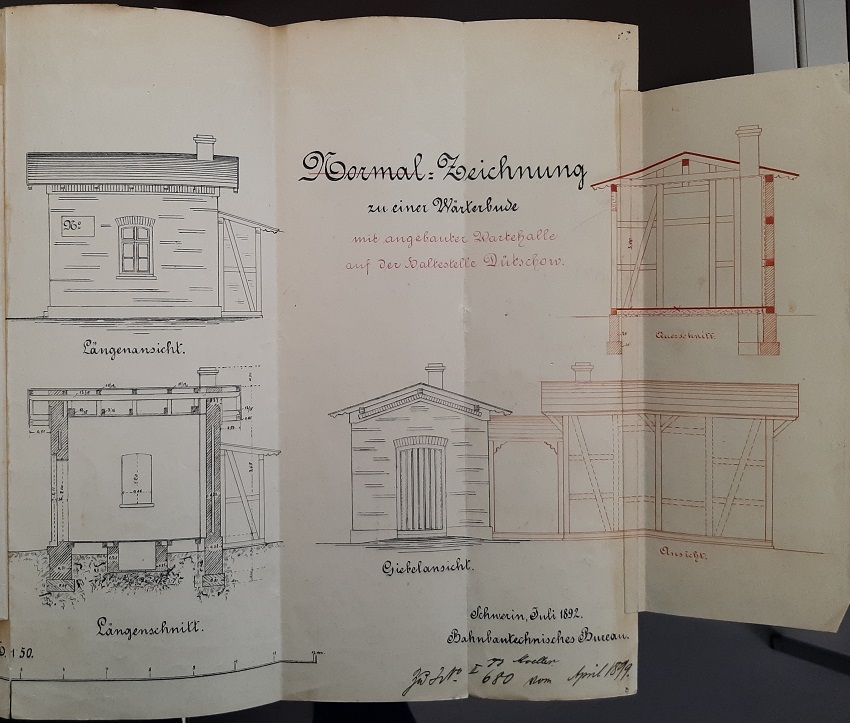 Normal-Zeichnung
zu einer Wärterbude
mit angebauter Wartehalle
auf der Haltestelle Dütschow.
No
Längenansicht.
Querschnitt.
Längenschnitt.
Giebelansicht.
Ansicht.
Schwerin, Juli 1892.
Bahnbautechnisches Bureau.
1 50.
680 vom April 1899.